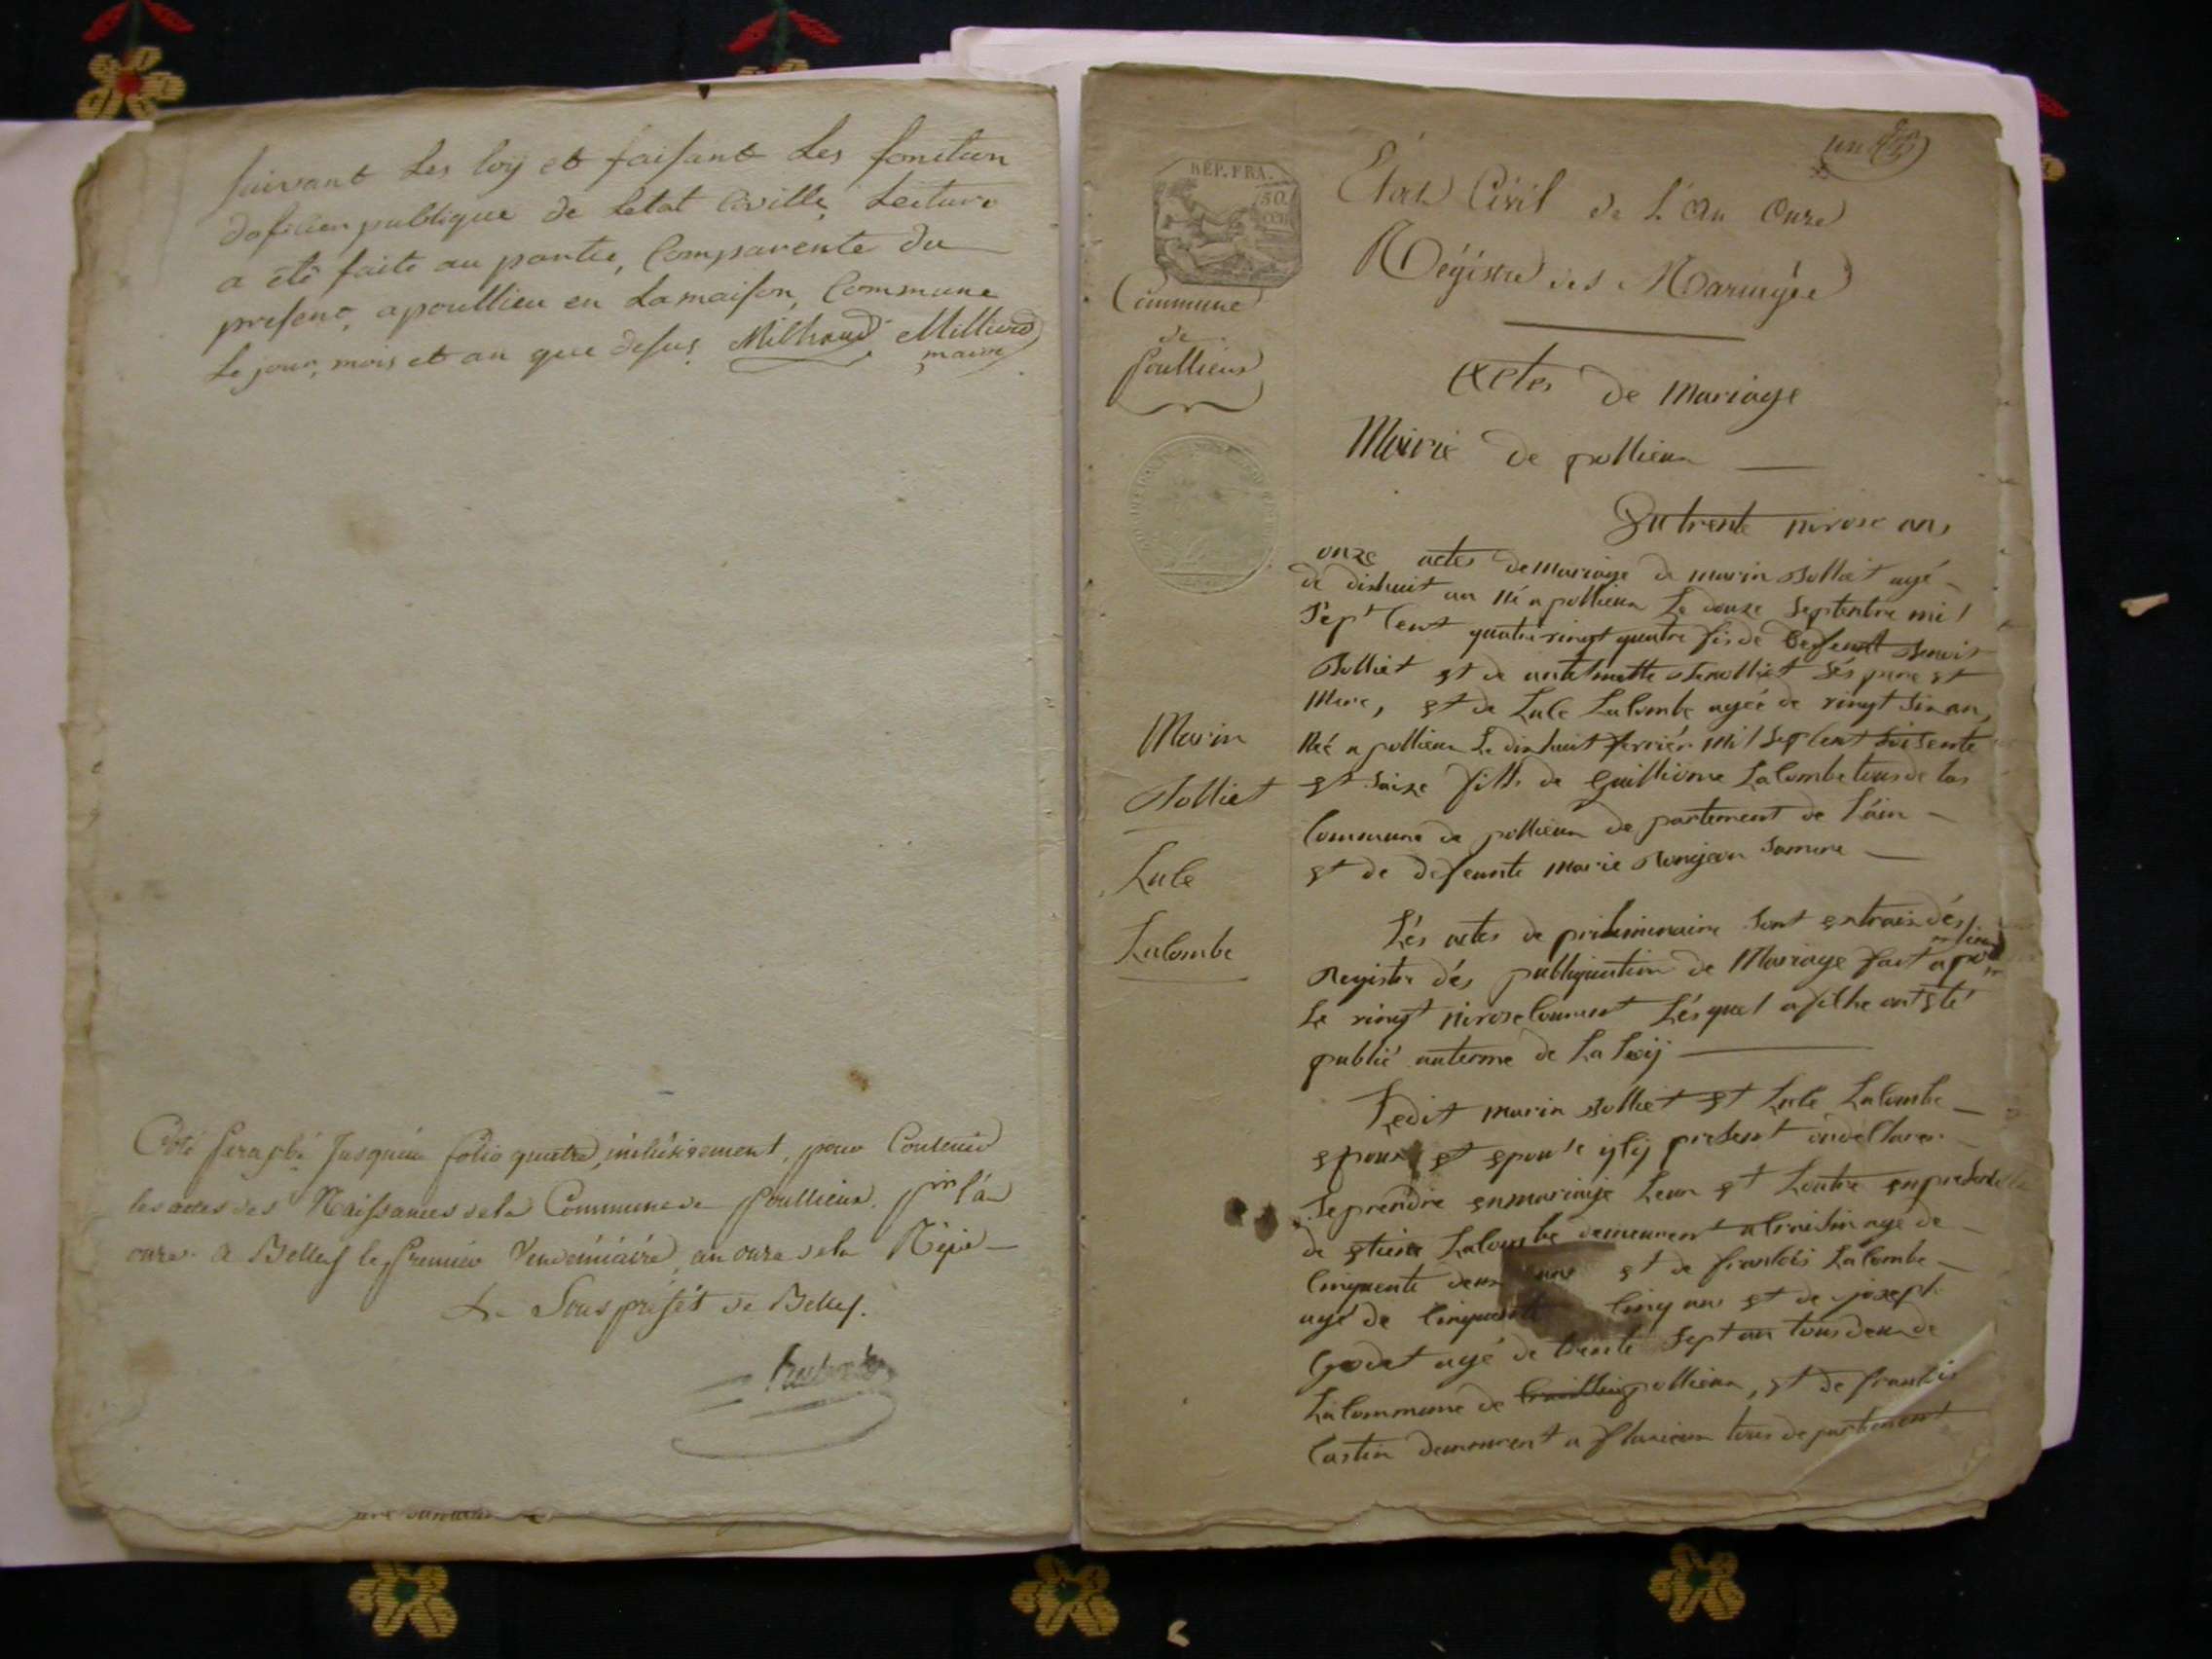 suivant les loy et faisant les fonction
doficier publique de letat Civille, Lecture
a été faite au partie, Comparente du
present, a poullieu en La maison, Commune
Le jour, mois et an que desus Milliand
maire
Coté Paraphé Jusqu'au folio quatre, inclusivement, pour Contenir
les actes des Naissances de la Commune de Poullieux, pr l'an
onze. à Belley le Premier Vendémiaire, an onze de la Répu
Le Sous préfet de Belley.
un
REP. FRA.
50
Etat Civil de L'An Onze
Régistre des Mariages
Commune
de
Poullieux
Actes de Mariage
Mairie de pollieu
Du trente nivose ans
onze actes de mariage de marin Jolliet agé
de dixhuit an né a pollieu Le douze Septembre mil
Sept Cent quatrevingt quatre fis de defeunt Benoit
Jolliet et de Ses pere et
Mere, et de Luce Lalombe agée de vingt Six an,
Né a pollieu Le dixhuit ferrier mil Sept Cent Soisente
et Saize fille de Guilliome Lalombe tous de las
Commune de pollieu de partement de L'ain
et de defeunte Marie Samere
Marin
Jolliet
Luce
Lalombe
Lés actes de préliminaire Sont extrais dés
Register dés publiquation de Mariage fait a
Le vingt nivose Courent Lés quel afiche ont été
publié auterme de La Loij
Ledit marin Jolliet et Luce Lalombe
epoux et epouse ylij présent
Se prendre en mariage Leun et Loutre en presence
de etiene Lalombe demeurent age de
Cinquente deux ans et de francois Lalombe
agé de Cinquente Cinq ans et de joseph
Godet agé de trente Sept an tous deux de
La Commune de pollieu, et de francois
Castin demeurent a flaxieu tous departement